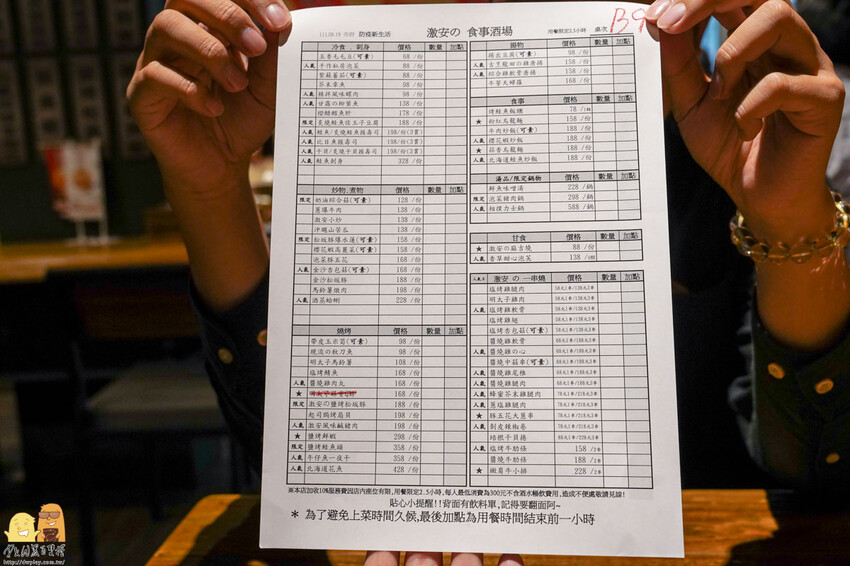 111.08.18 內湖 防疫新生活
激安の 食事酒場
用餐限定2.5小時 桌次 B9
冷食．刺身 價格 數量 加點
五香毛毛豆(可素) 68 /份
人氣 手作私房泡菜 88 /份
紫蘇蕃茄(可素) 88 /份
芥末章魚 98 /份
人氣 辣拌風味螺肉 98 /份
人氣 甘露の柳葉魚 138 /份
178 /份
限定 炙燒鮭魚佐玉子豆腐 188 /份
人氣 鮭魚/炙燒鮭魚握壽司 198 /份(3貫)
人氣 比目魚握壽司 198 /份(3貫)
人氣 干貝/炙燒干貝握壽司 198 /份(3貫)
人氣 鮭魚刺身 328 /份
炒物．煮物 價格 數量 加點
限定 奶油綜合菇(可素) 128 /份
蔥爆牛肉 138 /份
激安小炒 138 /份
沖繩山苦瓜 138 /份
限定 松坂豚水蓮(可素) 158 /份
櫻花蝦高麗菜(可素) 158 /份
泡菜豚五花 168 /份
人氣 金沙杏包菇(可素) 168 /份
金沙松坂豚 188 /份
馬鈴薯燉肉 198 /份
人氣 酒蒸蛤蜊 228 /份
燒烤 價格 數量 加點
帶皮玉米筍(可素) 98 /份
現流の秋刀魚 98 /份
明太子馬鈴薯 108 /份
塩烤鯖魚 168 /份
人氣 醬燒雞肉丸 168 /份
★ 168 /份
限定 激安の鹽烤松坂豚 188 /份
起司焗烤扇貝 198 /份
人氣 激安風味鹹豬肉 198 /份
★ 鹽烤鮮蝦 298 /份
限定 鹽烤鮭魚頭 358 /份
人氣 午仔魚一夜干 358 /份
人氣 北海道花魚 428 /份
揚物 價格 數量 加點
揚出豆腐(可素) 98 /份
人氣 古早龍田の雞唐揚 158 /份
人氣 綜合雞軟骨唐揚 158 /份
牛蒡天婦羅 168 /份
食事 價格 數量 加點
烤鮭魚飯糰 78 /1顆
★ 粉紅烏龍麵 158 /份
牛肉炒飯(可素) 188 /份
人氣 櫻花蝦炒飯 188 /份
★ 蒜香烏龍麵 188 /份
人氣 北海道鮭魚炒飯 188 /份
湯品/限定鍋物 價格 數量 加點
鮮魚味噌湯 228 /鍋
限定 泡菜豬肉鍋 298 /鍋
人氣 相撲力士鍋 588 /鍋
甘食 價格 數量 加點
★ 激安の麻吉燒 88 /份
人氣 香草甜心泡芙 138 /3顆
激安 の 一串燒 價格 數量 加點
塩烤雞腿肉
明太子雞肉
人氣 塩烤雞軟骨
塩烤雞翅
塩烤杏包菇(可素)
醬燒雞軟骨
人氣 醬燒雞の心
醬燒中卷串(可素)
人氣 醬燒雞尾椎
人氣 醬燒雞腿肉
人氣 蜂蜜芥末雞腿肉
人氣 蔥塩雞腿肉
★ 豚五花大蔥串
人氣 剝皮辣椒卷
培根干貝捲
人氣 塩烤牛肋條 158 /2串
醬燒牛肋條 188 /2串
★ 嫩肩牛小排 228 /2串
※本店加收10%服務費因店內座位有限，用餐限定2.5小時，每人最低消費為300元不含酒水暢飲費用，造成不便處敬請見諒！
貼心小提醒!!背面有飲料單，記得要翻面阿~
* 為了避免上菜時間久候，最後加點為用餐時間結束前一小時
http://dwplay.com.tw/